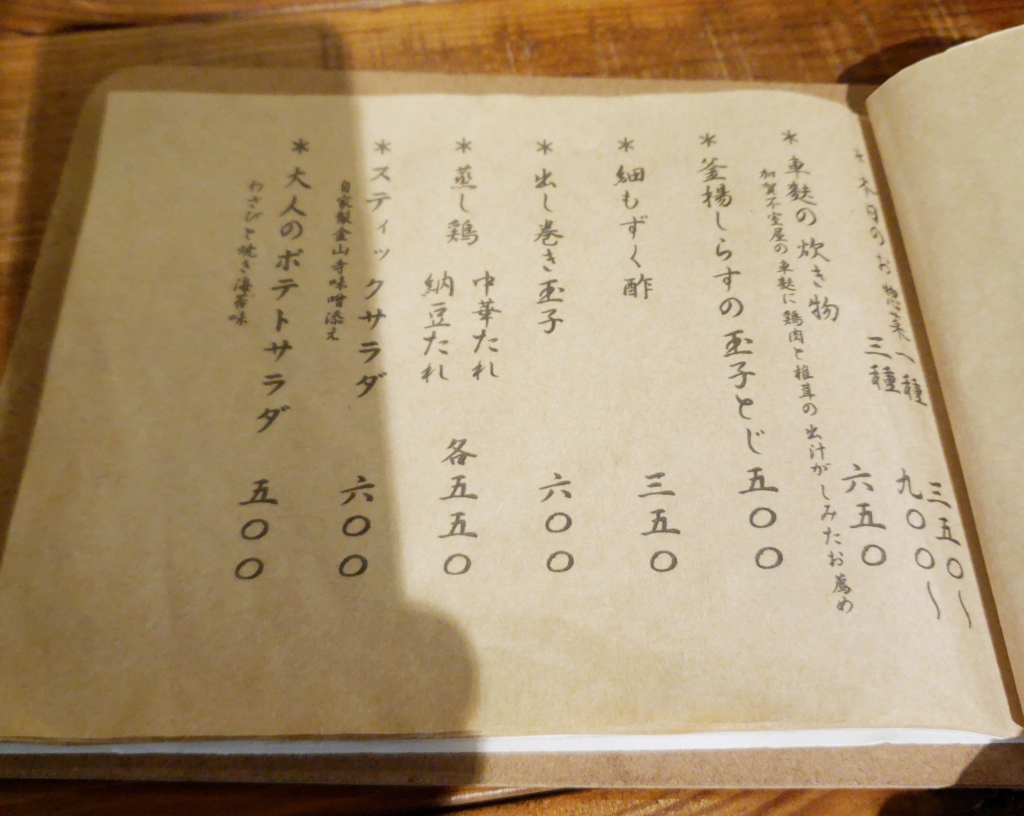 ＊本日のお惣菜 一種 三五〇〜
三種 九〇〇〜
＊車麩の炊き物 六五〇
加賀不室屋の車麩に鶏肉と椎茸の出汁がしみたお薦め
＊釜揚しらすの玉子とじ 五〇〇
＊細もずく酢 三五〇
＊出し巻き玉子 六〇〇
＊蒸し鶏 中華たれ
納豆たれ 各五五〇
＊スティックサラダ 六〇〇
自家製金山寺味噌添え
＊大人のポテトサラダ 五〇〇
わさびと焼き海苔味